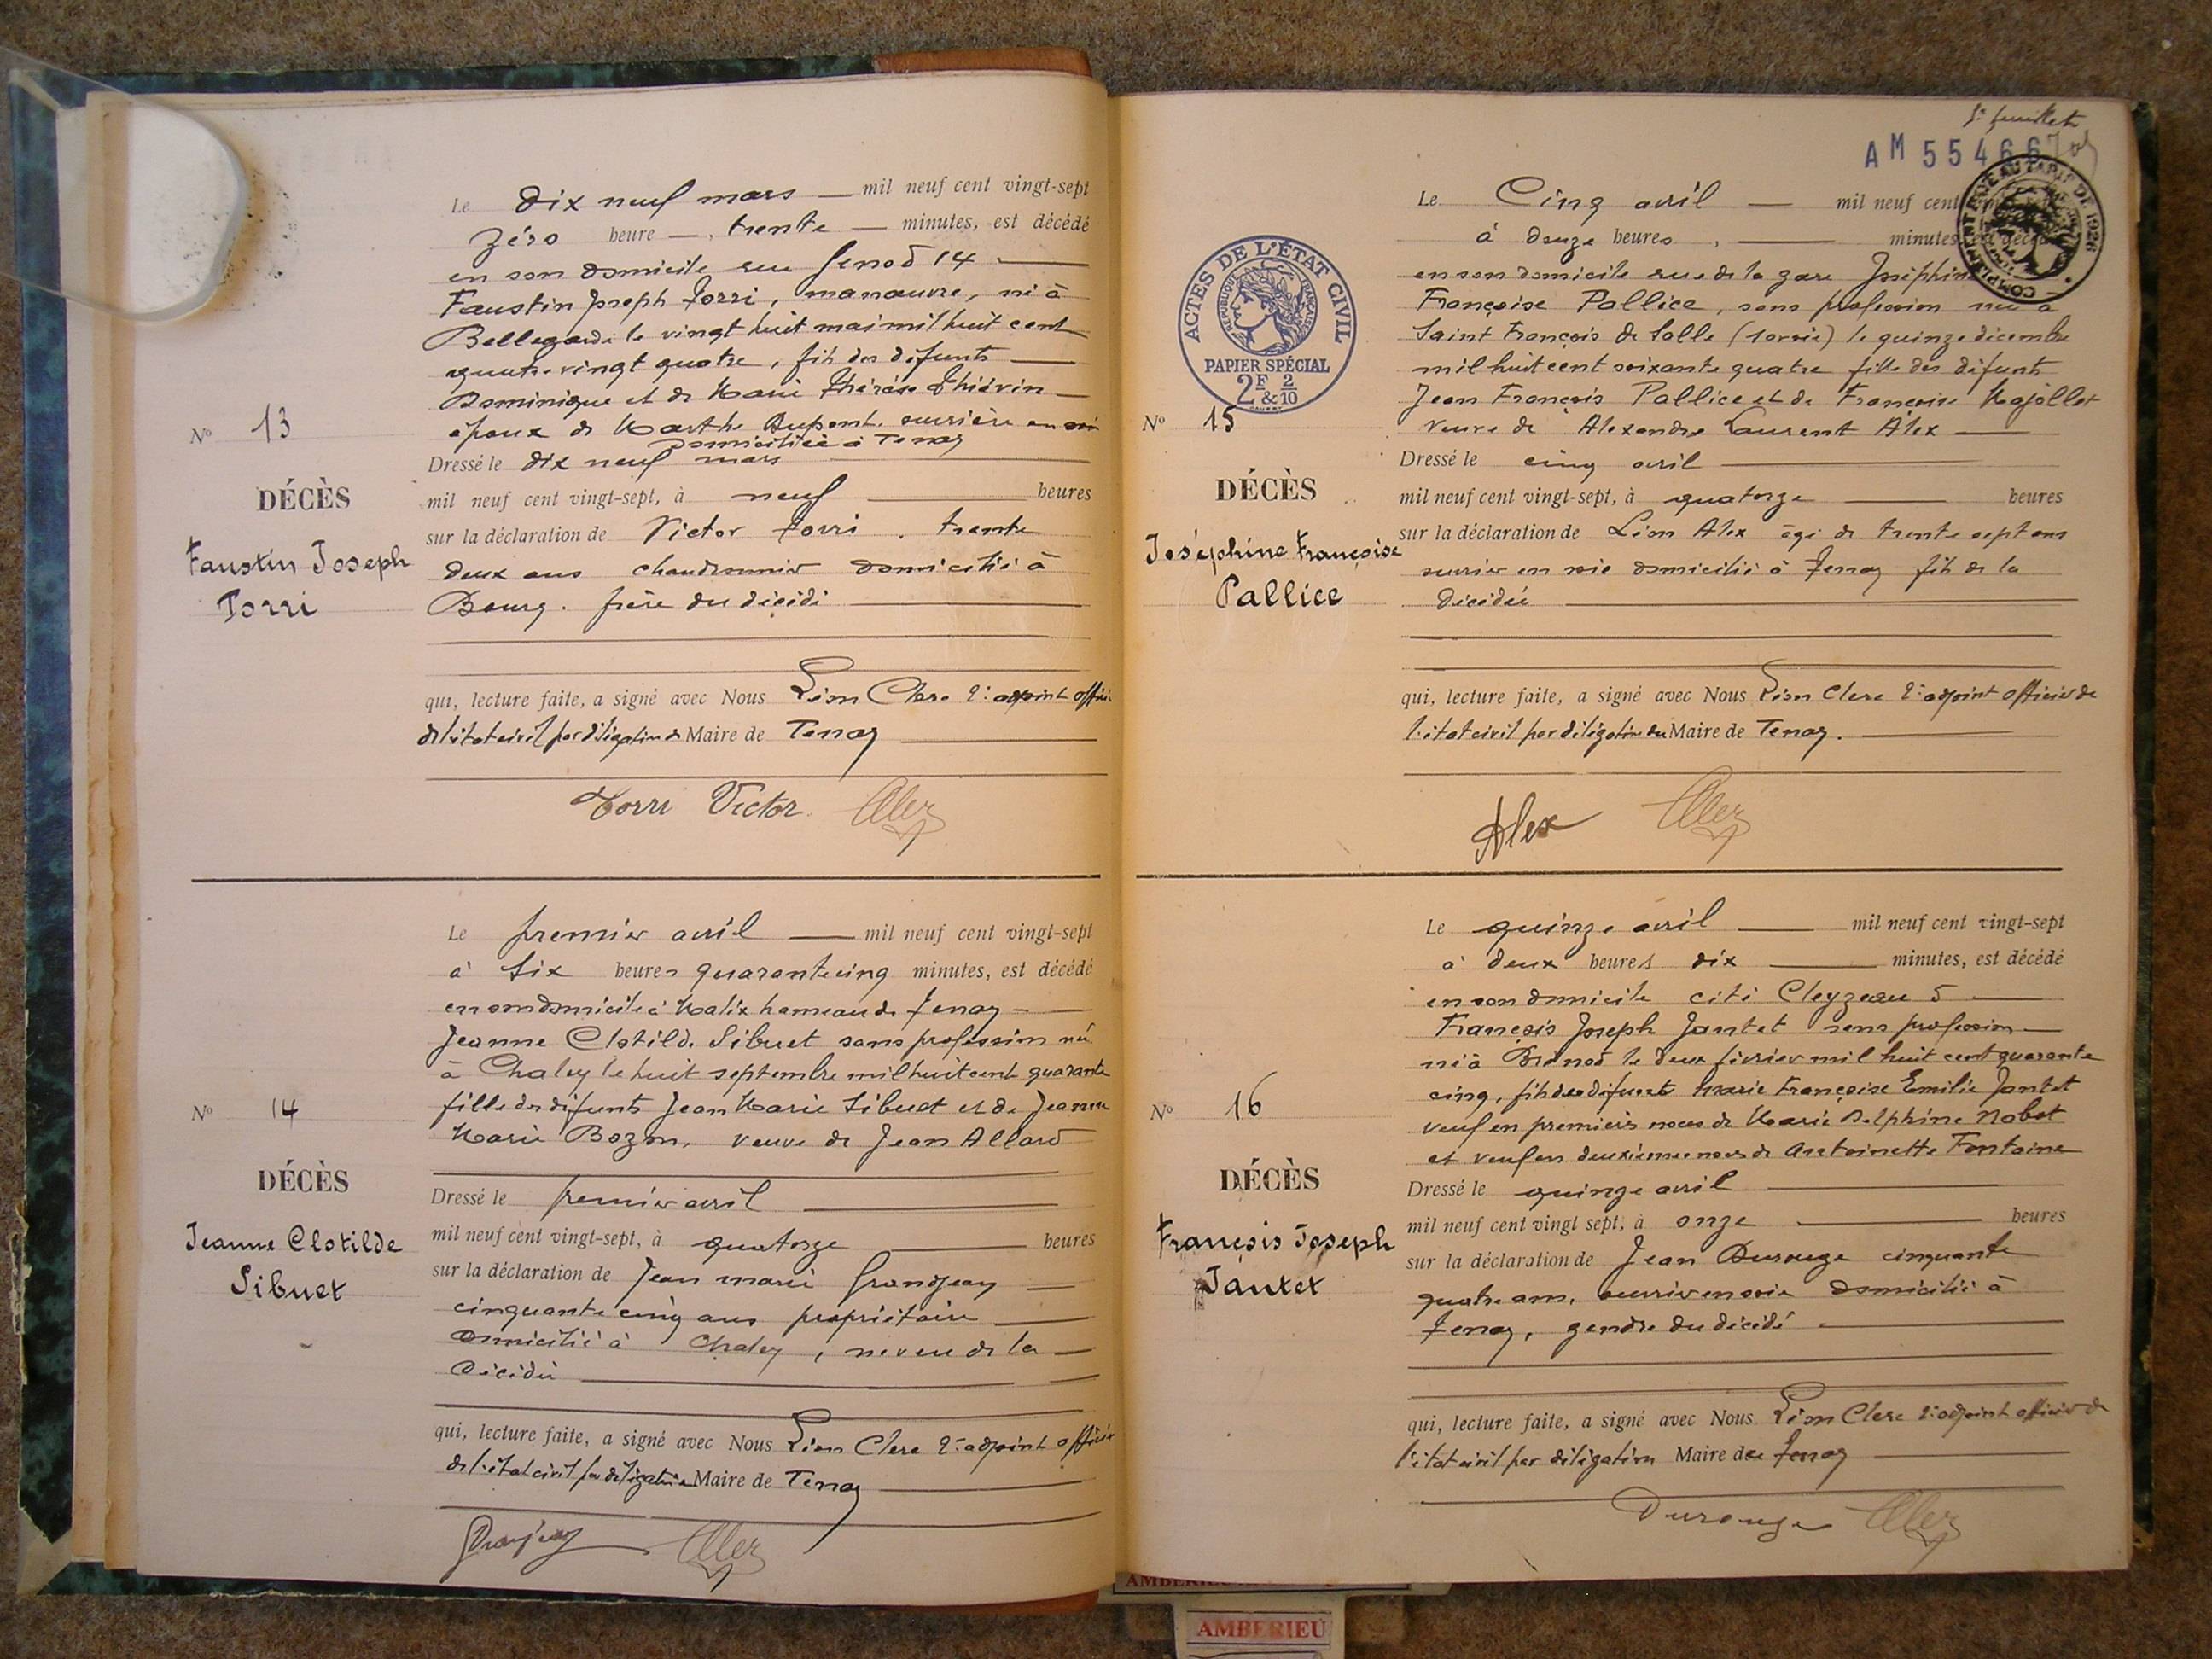 Le dix neuf mars — mil neuf cent vingt-sept
zéro heure — , trente — minutes, est décédé
en son domicile rue Genod 14
Faustin Joseph Torri, manœuvre, né à
Bellegarde le vingt huit mai mil huit cent
quatre vingt quatre, fils des défunts
Dominique et de Marie Thérèse Thiévin
époux de Marthe Dupont, ouvrière en soie
domiciliée à Tenay
Nº 13
Dressé le dix neuf mars
mil neuf cent vingt-sept, à neuf heures
DÉCÈS
sur la déclaration de Victor Torri, trente
Faustin Joseph
Torri
deux ans chaudronnier domicilié à
Bourg, frère du décédé
qui, lecture faite, a signé avec Nous Léon Clerc 2e adjoint officier
de l'état civil par délégation du Maire de Tenay
Torri Victor
Le premier avril — mil neuf cent vingt-sept
à six heures quarante cinq minutes, est décédé
en son domicile à Malix hameau de Tenay
Jeanne Clotilde Sibuet sans profession née
à Chaley le huit septembre mil huit cent quarante
fille des défunts Jean Marie Sibuet et de Jeanne
Marie Bozon, veuve de Jean Allard
Nº 14
DÉCÈS
Jeanne Clotilde
Sibuet
Dressé le premier avril
mil neuf cent vingt-sept, à quatorze heures
sur la déclaration de Jean Marie Grandjean
cinquante cinq ans propriétaire
domicilié à Chaley, neveu de la
décédée
qui, lecture faite, a signé avec Nous Léon Clerc 2e adjoint officier
de l'état civil par délégation Maire de Tenay
5e feuillet
AM 55466
COMPLEMENT PAYE AU TARIF DE 1926
Le Cinq avril — mil neuf cent
à douze heures, — minutes
en son domicile rue de la gare Joséphine
Françoise Pallice, sans profession née à
Saint François de Salle (Savoie) le quinze décembre
mil huit cent soixante quatre fille des défunts
Jean François Pallice et de Françoise Majollet
veuve de Alexandre Laurent Alex
ACTES DE L'ÉTAT CIVIL
RÉPUBLIQUE FRANÇAISE
PAPIER SPÉCIAL
2F & 2/10
Nº 15
DÉCÈS
Joséphine Françoise
Pallice
Dressé le cinq avril
mil neuf cent vingt-sept, à quatorze heures
sur la déclaration de Léon Alex âgé de trente sept ans
ouvrier en soie domicilié à Tenay fils de la
décédée
qui, lecture faite, a signé avec Nous Léon Clerc 2e adjoint officier de
l'état civil par délégation du Maire de Tenay.
Alex
Le quinze avril — mil neuf cent vingt-sept
à deux heures dix — minutes, est décédé
en son domicile cité Cleyzeau 5
François Joseph Jantet sans profession
né à Brénod le deux février mil huit cent quarante
cinq, fils des défunts Marie Françoise Emilie Jantet
veuf en premières noces de Marie Delphine Nobet
et veuf en deuxièmes noces de Antoinette Fontaine
Nº 16
DÉCÈS
François Joseph
Jantet
Dressé le quinze avril
mil neuf cent vingt sept, à onze heures
sur la déclaration de Jean Durouge cinquante
quatre ans, ouvrier en soie domicilié à
Tenay, gendre du décédé
qui, lecture faite, a signé avec Nous Léon Clerc 2e adjoint officier de
l'état civil par délégation Maire de Tenay
Durouge
AMBERIEU